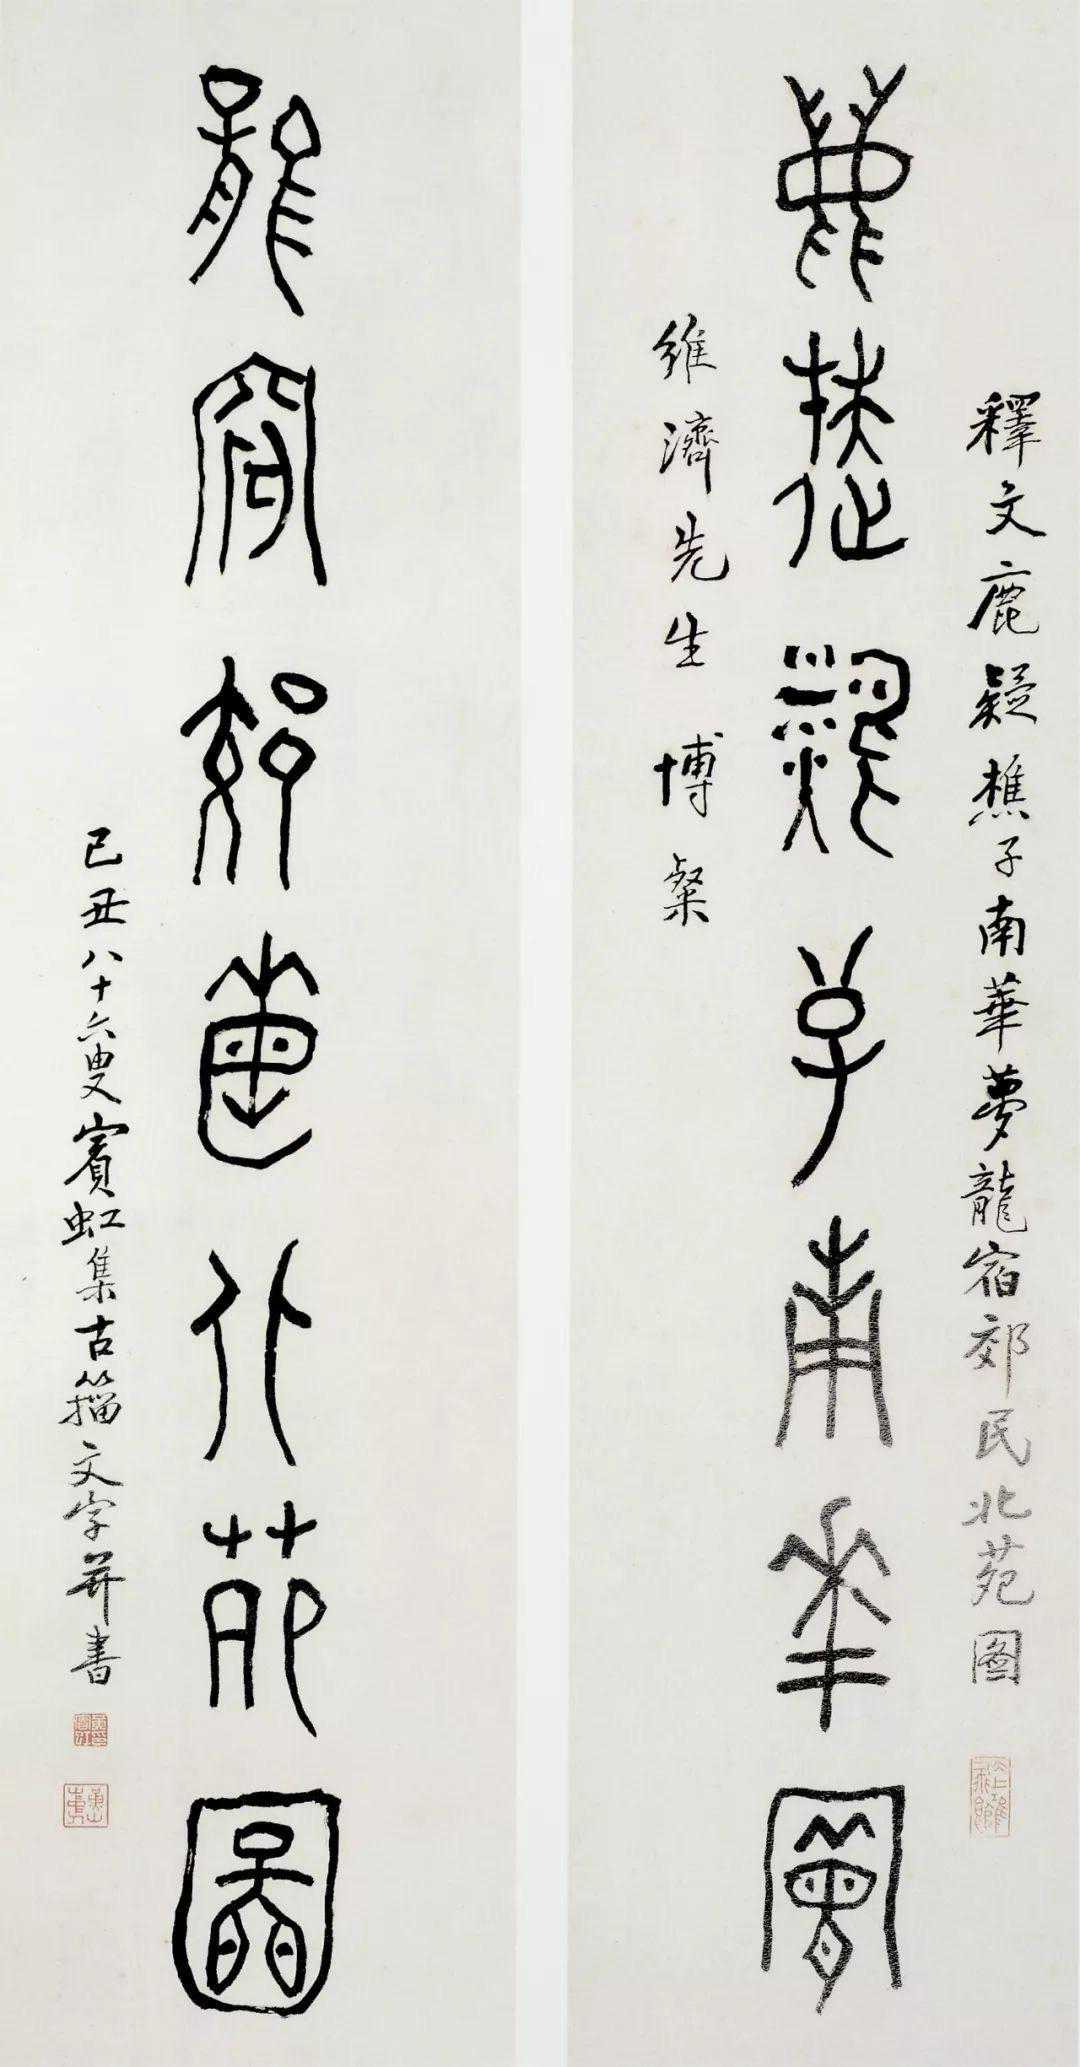 釋文鹿疑樵子南華夢龍宿郊民北苑图
鹿疑樵子南華夢
維濟先生 博粲
龍宿郊民北苑圖
己丑八十六叟賓虹集古籀文字并書